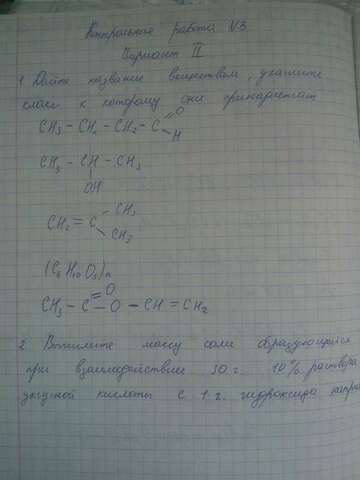 Контрольная работа №3
Вариант II
1. Дайте название веществам, укажите
класс к которому они принадлежат
CH3 – CH2 – CH2 – C
O
H
CH3 – CH – CH3
OH
CH2 = C
CH3
CH3
(C6H10O5)n
CH3 – C – O – CH = CH2
O
2. Вычислите массу соли образующейся
при взаимодействии 30 г. 10% раствора
уксусной кислоты с 1 г. гидроксида натри